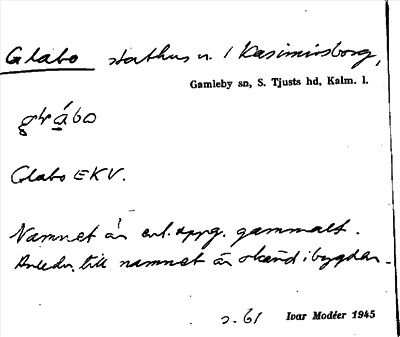 Glabo stathus u. / Kasimirsborg,
Gamleby sn, S. Tjusts hd, Kalm. l.
grábo
Glabo EKV.
Namnet är enl. uppg. gammalt.
Anledn. till namnet är okänd i bygden.
s. 61 Ivar Modéer 1945